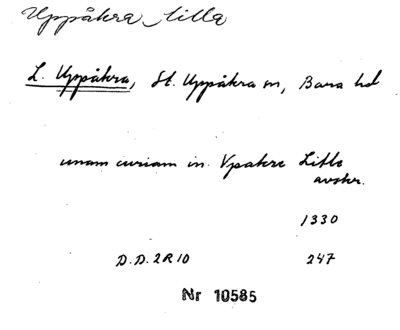 Uppåkra, lilla
L. Uppåkra, St. Uppåkra sn, Bara hd
unam curiam in Vpakre Litle
avskr.
1330
D.D.2R10 247
Nr 10585